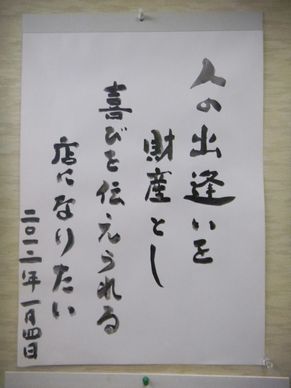 人の出逢いを
財産とし
喜びを伝えられる
店になりたい
二〇一二年一月四日